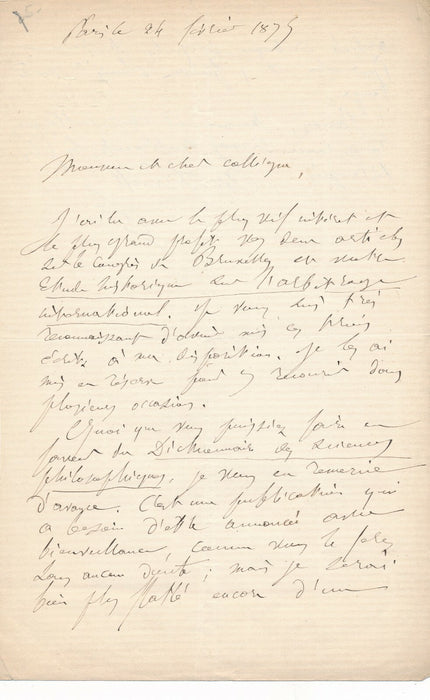 Paris le 24 février 1875
Monsieur et cher collègue,
J'ai lu avec le plus vif intérêt et
le plus grand profit vos deux articles
sur le Congrès de Bruxelles et votre
Etude historique sur l'arbitrage
international. Je vous suis très
reconnaissant d'avoir mis ces trois
écrits à ma disposition. Je les ai
mis en réserve pour y recourir dans
plusieurs occasions.
Quoi que vous puissiez faire en
faveur du Dictionnaire des sciences
philosophiques, je vous en remercie
d'avance. C'est une publication qui
a besoin d'être annoncée avec
bienveillance, comme vous le ferez
sans aucun doute ; mais je serai
bien plus flatté encore d'un